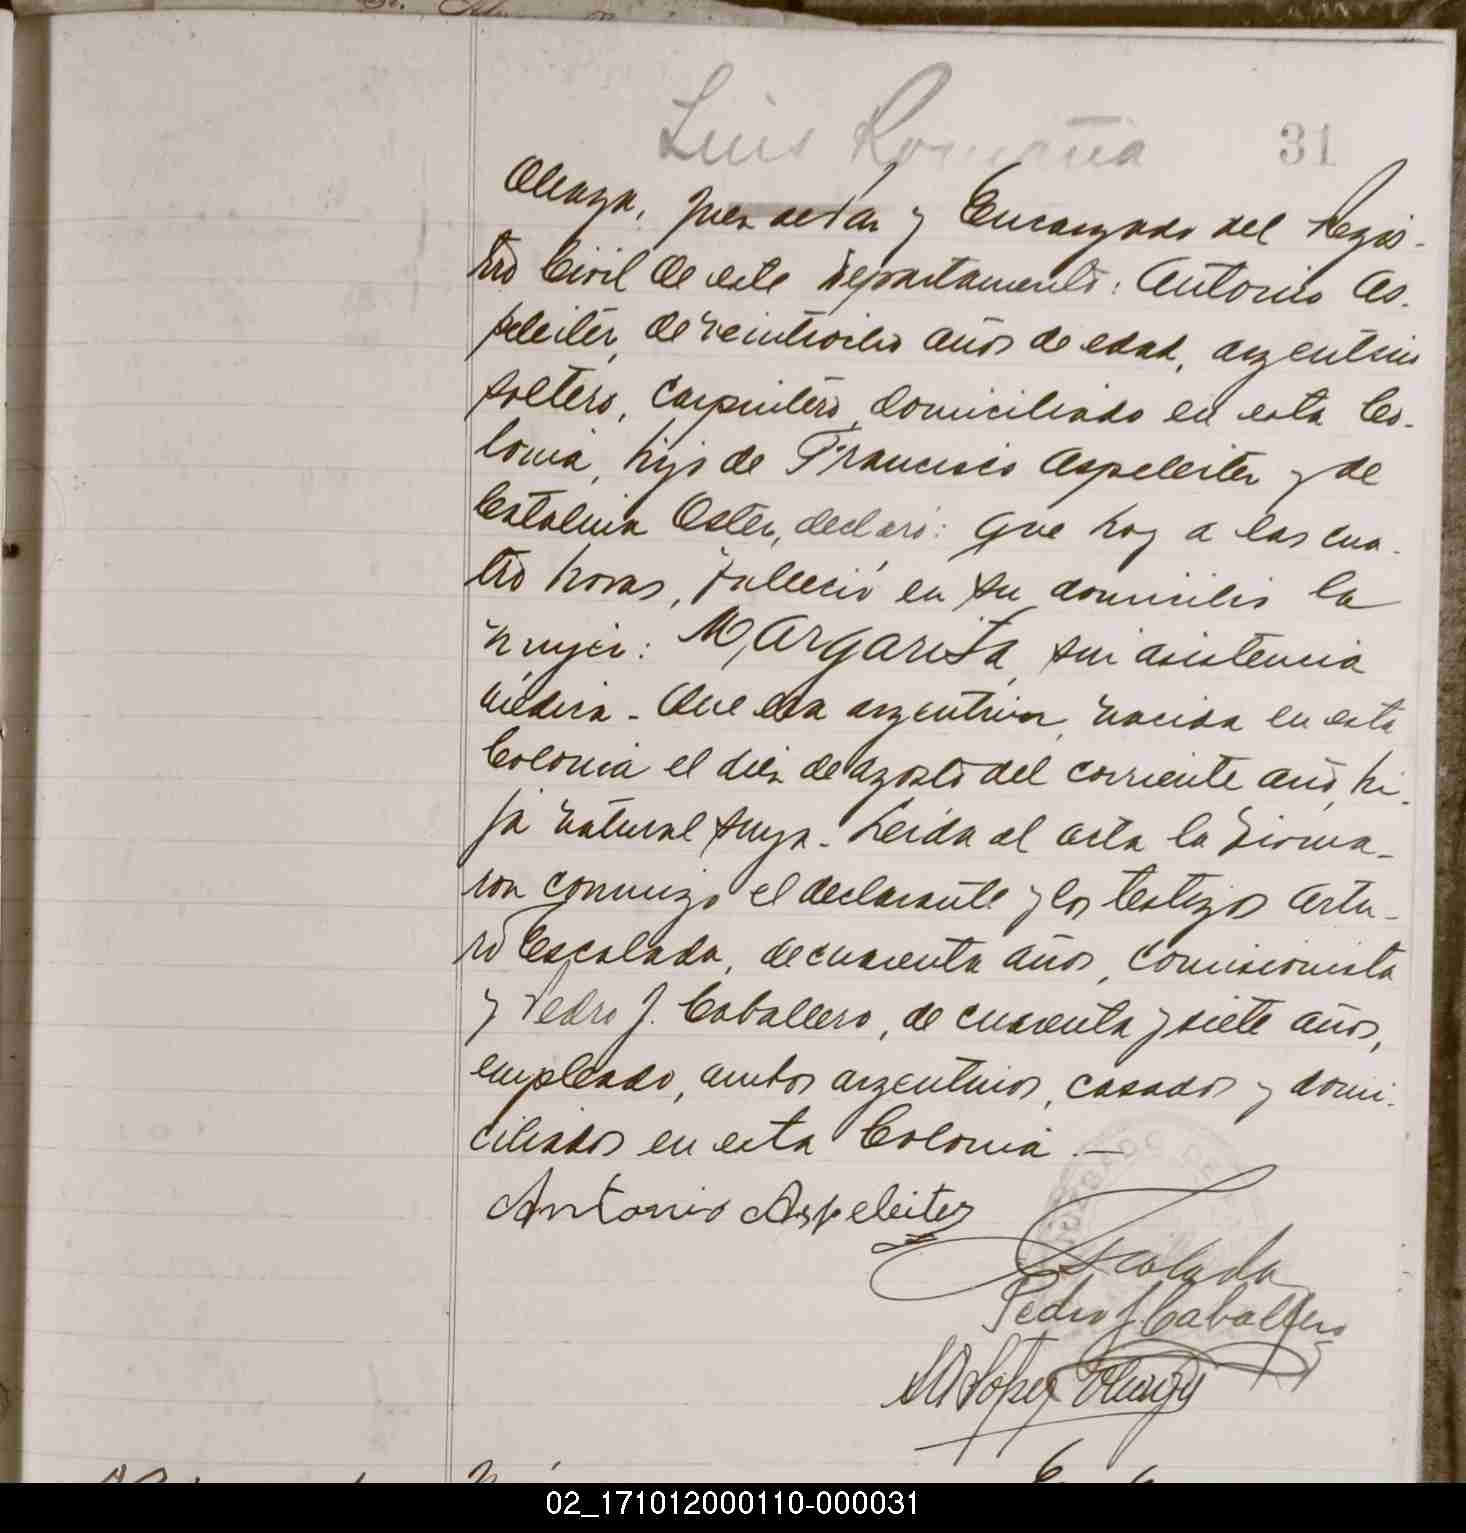 Luis Romaña
31
Oleaga, Juez de Paz y Encargado del Regis-
tro Civil de este Departamento: Antonio As-
peleiter, de veintiocho años de edad, argentino
soltero, carpintero, domiciliado en esta Co-
lonia, hijo de Francisco Aspeleiter y de
Catalina Oster, declaró: Que hoy a las cua-
tro horas, falleció en su domicilio la
mujer: Margarita, sin asistencia
médica - Que era argentina, nacida en esta
Colonia el diez de agosto del corriente año, hi-
ja natural suya - Leída el acta la firma-
ron conmigo el declarante y los testigos Artu-
ro Escalada, de cuarenta años, comisionista
y Pedro J. Caballero, de cuarenta y siete años,
empleado, ambos argentinos, casados y domi-
ciliados en esta Colonia. —
Antonio Aspeleiter
Escalada
Pedro J Caballero
López Oleaga
JUZGADO DE
02_171012000110-000031